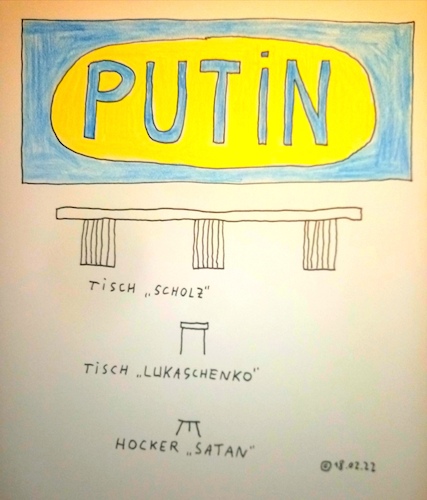 PUTiN
TiSCH „SCHOLZ"
TiSCH „LUKASCHENKO"
HOCKER „SATAN"
© 18.02.22